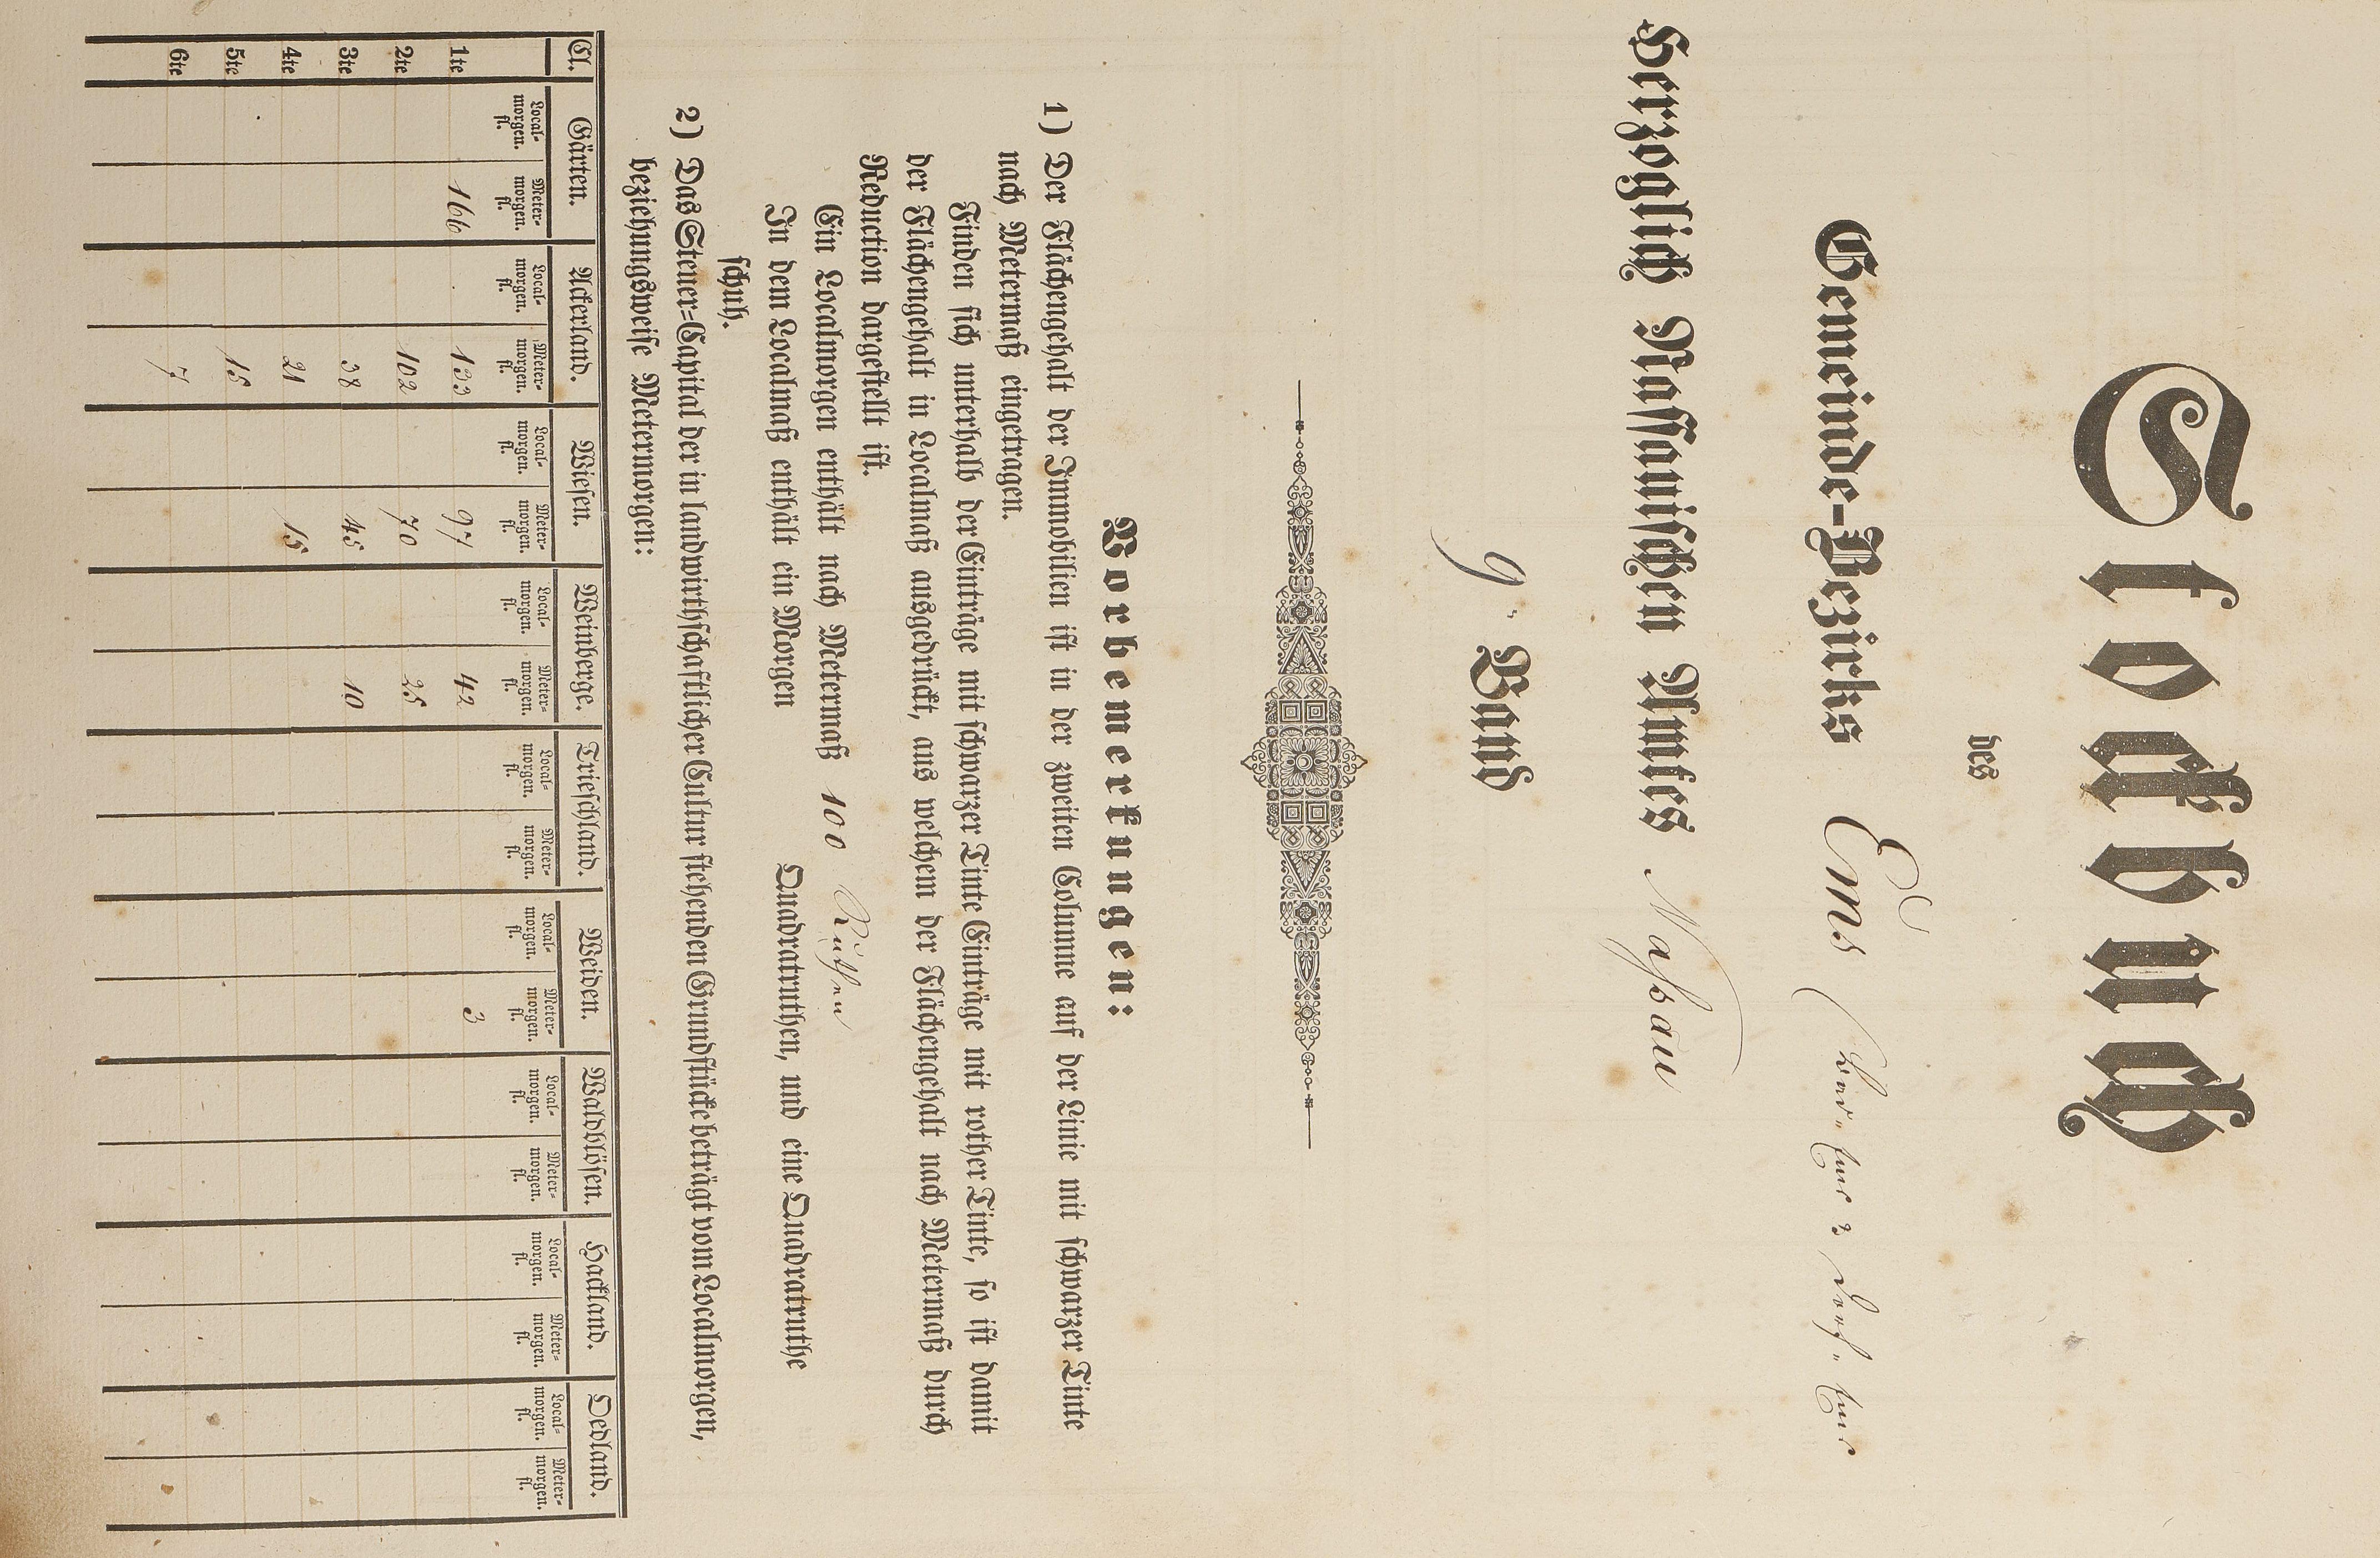 Stockbuch
des
Gemeinde-Bezirks Ems
Herzoglich Nassauischen Amtes Naßau
9. Band
Vorbemerkungen:
1) Der Flächengehalt der Immobilien ist in der zweiten Columne auf der Linie mit schwarzer Tinte
nach Metermaß eingetragen.
Finden sich unterhalb der Einträge mit schwarzer Tinte Einträge mit rother Tinte, so ist damit
der Flächengehalt in Localmaß ausgedrückt, aus welchem der Flächengehalt nach Metermaß durch
Reduction dargestellt ist.
Ein Localmorgen enthält nach Metermaß 100 Ruthen
In dem Localmaß enthält ein Morgen Quadratruthen, und eine Quadratruthe
schuh.
2) Das Steuer=Capital der in landwirthschaftlicher Cultur stehenden Grundstücke beträgt vom Localmorgen,
beziehungsweise Metermorgen:
Cl. Gärten. Ackerland. Wiesen. Weinberge. Trieschland. Weiden. Waldblösen. Hackland. Oedland.
Local= Meter= Local= Meter= Local= Meter= Local= Meter= Local= Meter= Local= Meter= Local= Meter= Local= Meter= Local= Meter=
morgen. morgen. morgen. morgen. morgen. morgen. morgen. morgen. morgen. morgen. morgen. morgen. morgen. morgen. morgen. morgen. morgen. morgen.
fl. fl. fl. fl. fl. fl. fl. fl. fl. fl. fl. fl. fl. fl. fl. fl. fl. fl.
1te 166 133 97 42 3
2te 102 70 25
3te 38 45 10
4te 21 15
5te 15
6te 7